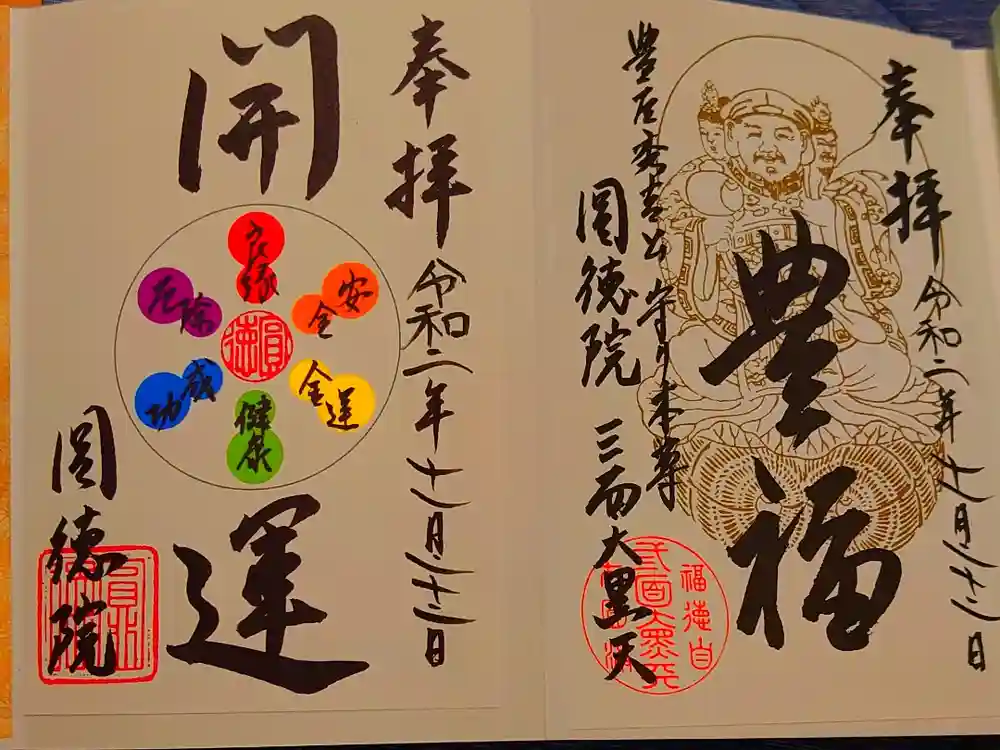 奉拝
令和二年十一月二十二日
豊福
豊臣秀吉公守り本尊
圓徳院 三面大黒天
福徳自
奉拝
令和二年十一月二十二日
開運
良縁
安全
金運
健康
成功
厄除
圓徳
圓徳院